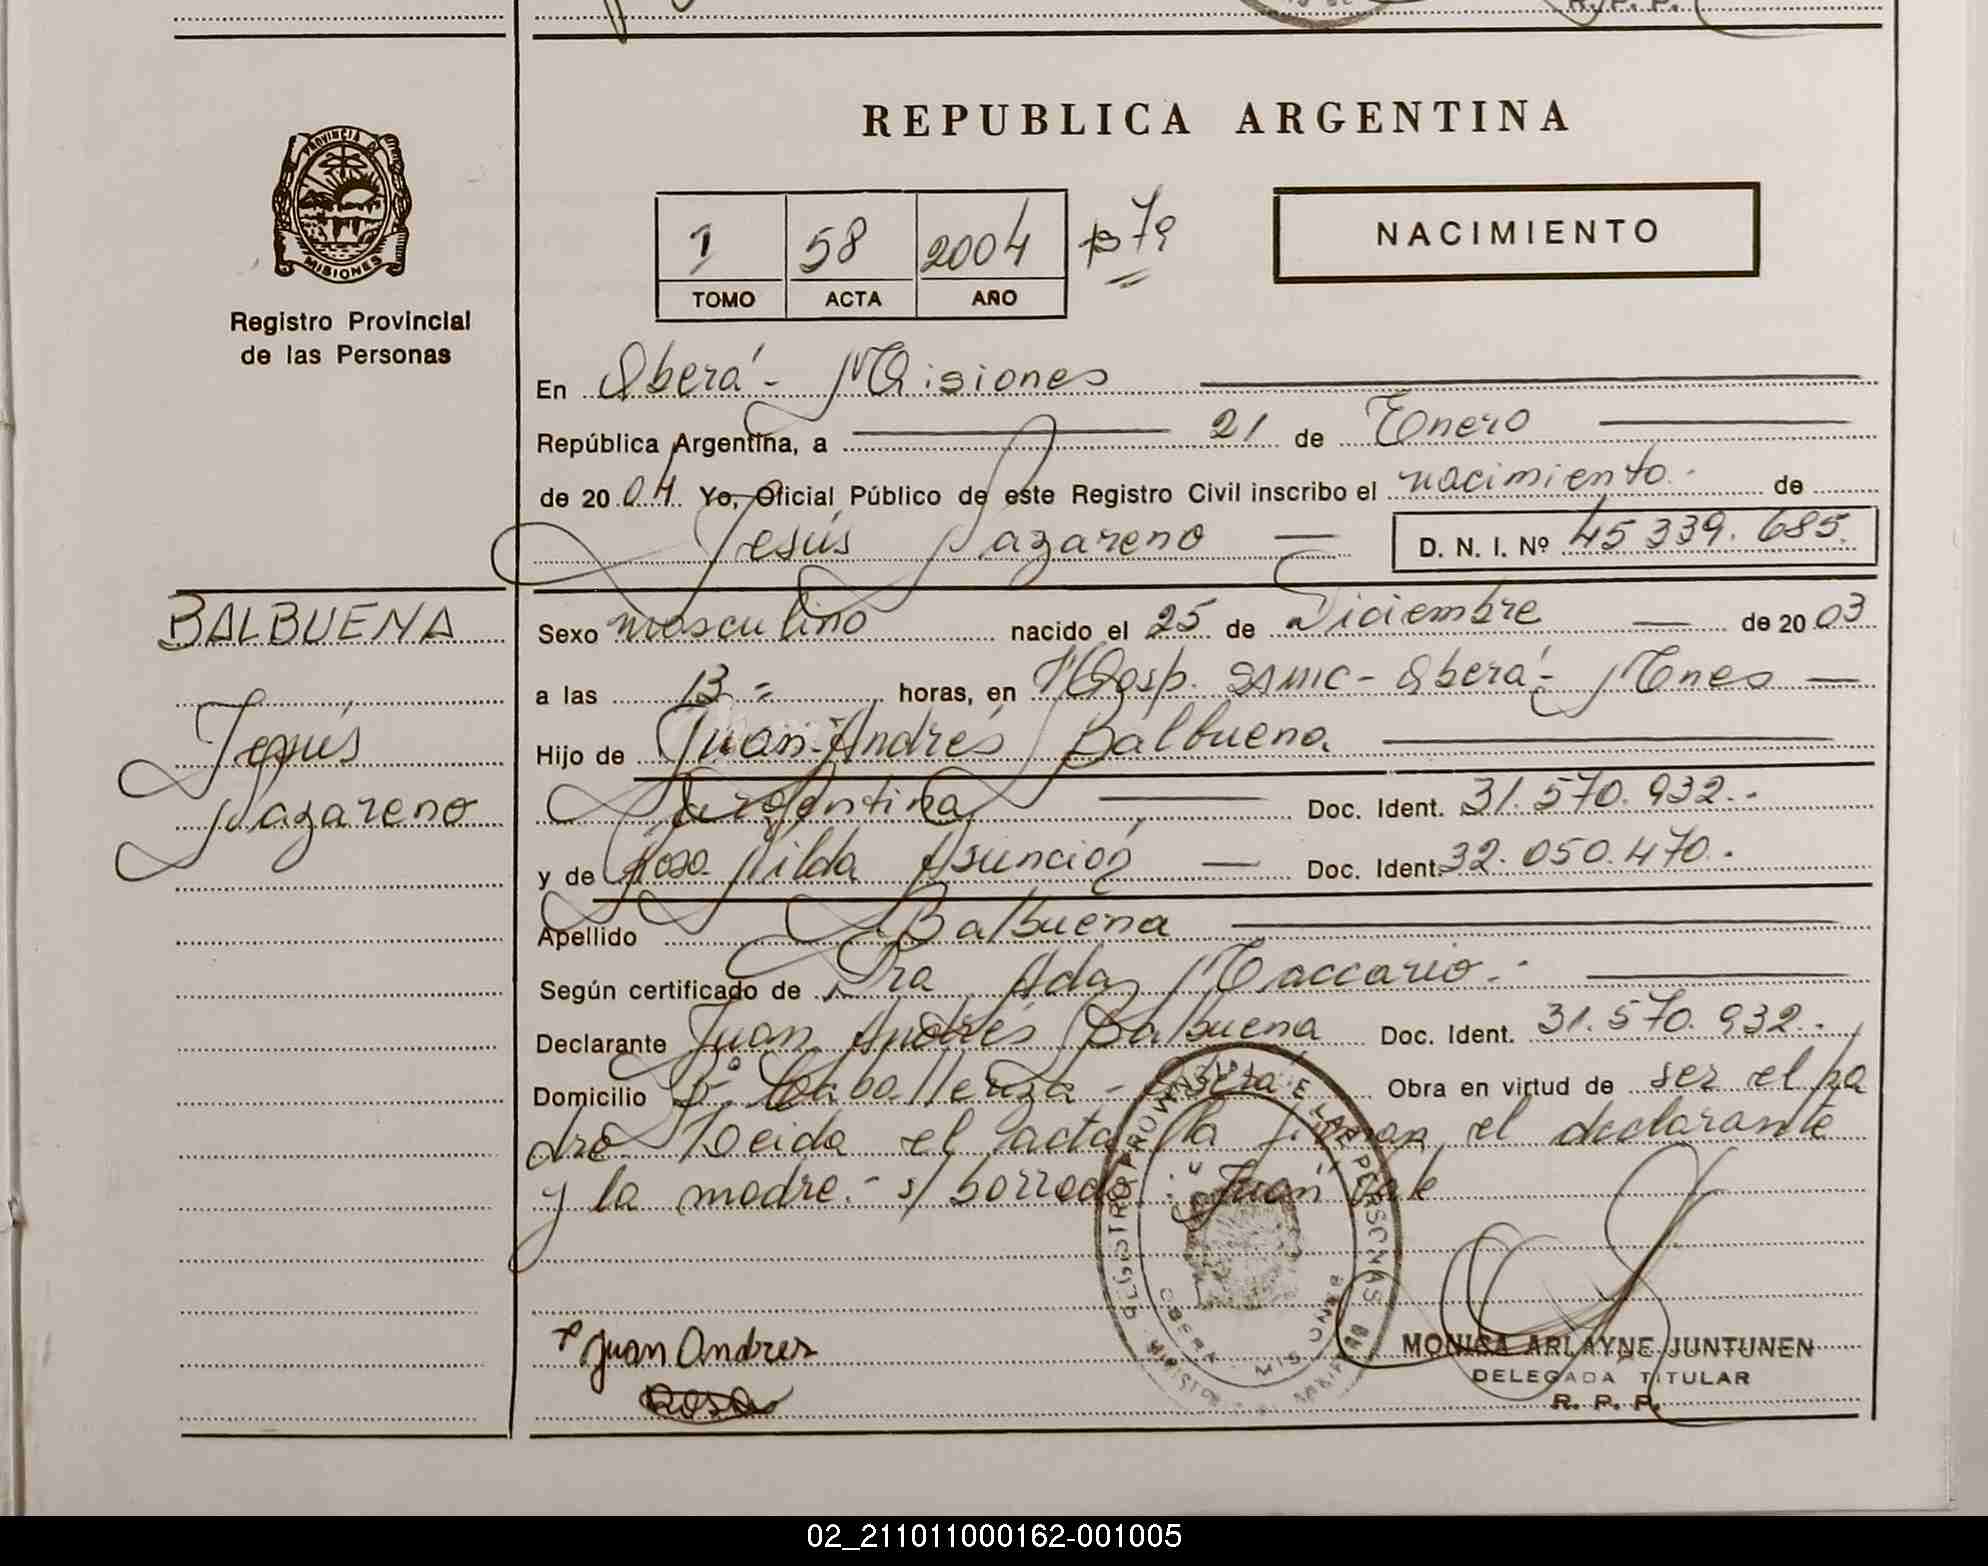 REPUBLICA ARGENTINA
PROVINCIA DE
MISIONES
Registro Provincial
de las Personas
1 58 2004 79
TOMO ACTA AÑO
NACIMIENTO
En Oberá - Misiones
República Argentina, a 21 de Enero
de 20 04 Yo, Oficial Público de este Registro Civil inscribo el nacimiento de
Jesús Nazareno D. N. I. Nº 45 339. 685.
BALBUENA
Jesús
Nazareno
Sexo masculino nacido el 25 de Diciembre de 20 03
a las 13 = horas, en Hosp. SAMIC - Oberá - Mnes
Hijo de Juan Andrés Balbuena
Argentina Doc. Ident. 31. 570. 932.-
y de Rosa Nilda Asunción Doc. Ident. 32. 050. 470.-
Apellido Balbuena
Según certificado de Dra Ada Maccario.-
Declarante Juan Andrés Balbuena Doc. Ident. 31. 570. 932.-
Domicilio Bº Caballeriza - Oberá Obra en virtud de ser el pa
dre Leida el acta la firman el declarante
y la madre.- s/ borrado: "Juan" vale
Juan Andres
Rosa
MONICA ARLAYNE JUNTUNEN
DELEGADA TITULAR
R. P. P.
02_211011000162-001005